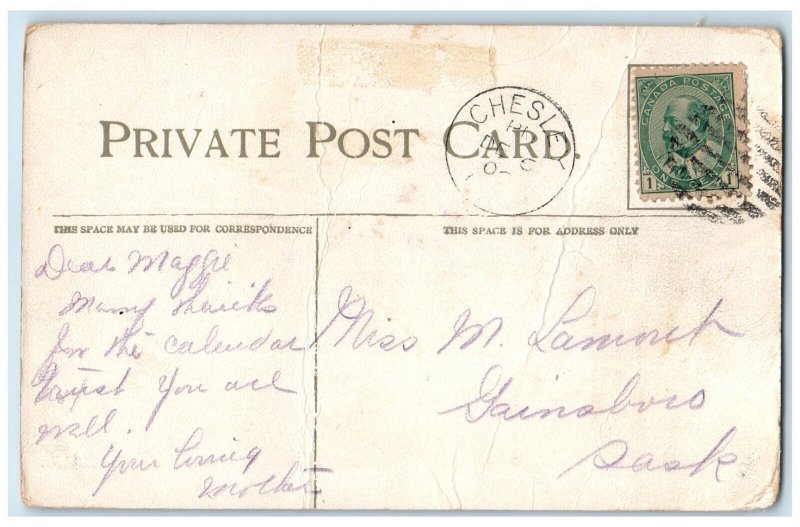 PRIVATE POST CARD.
CHESLEY
CANADA POSTAGE
1 1
THIS SPACE MAY BE USED FOR CORRESPONDENCE
THIS SPACE IS FOR ADDRESS ONLY
Dear Maggie
Many thanks
for the calendar
trust you are
well.
Your loving
Mother.
Miss M. Lamont
Gainsboro
Sask